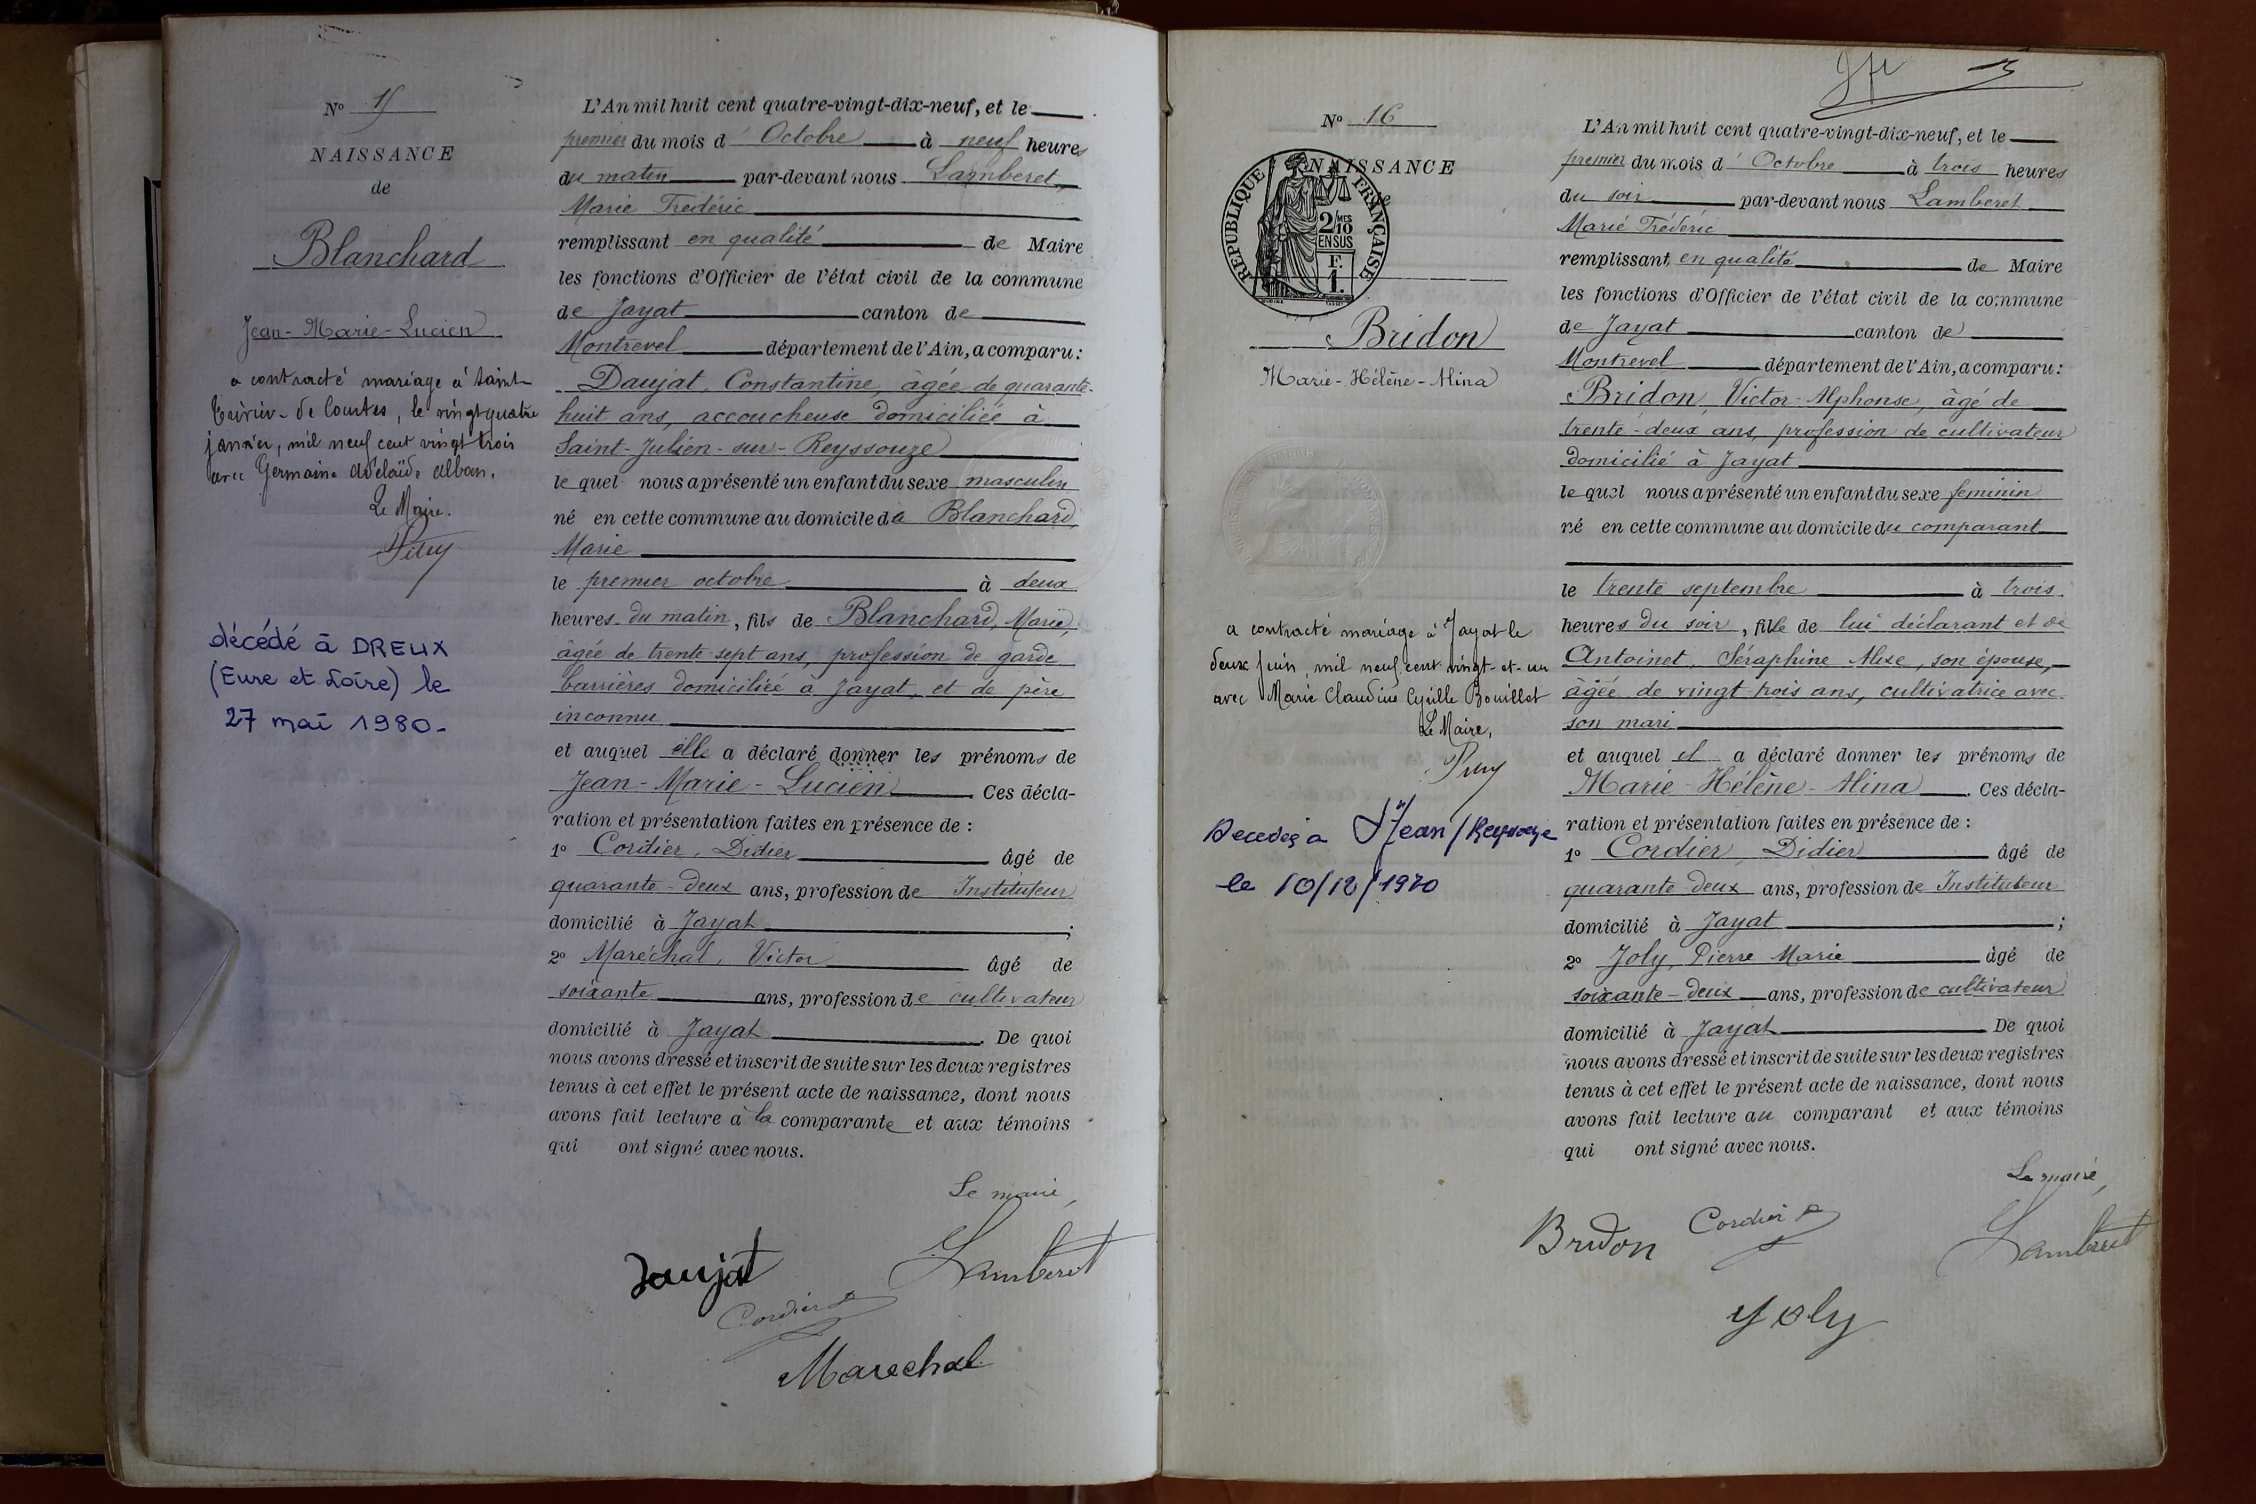 N° 15
NAISSANCE
de
Blanchard
Jean-Marie-Lucien
a contracté mariage à Saint-
Trivier-de Courtes, le vingt quatre
janvier, mil neuf cent vingt trois
avec Germaine Adélaïde Alban.
Le Maire.
décédé à DREUX
(Eure et Loire) le
27 mai 1980.
L'An mil huit cent quatre-vingt-dix-neuf, et le
premier du mois d' Octobre à neuf heures
du matin par-devant nous Lamberet,
Marie Frédéric
remplissant en qualité de Maire
les fonctions d'Officier de l'état civil de la commune
de Jayat canton de
Montrevel département de l'Ain, a comparu:
Daujat, Constantine, âgée de quarante-
huit ans, accoucheuse domiciliée à
Saint-Julien-sur-Reyssouze
lequel nous a présenté un enfant du sexe masculin
né en cette commune au domicile de Blanchard,
Marie
le premier octobre à deux
heures du matin, fils de Blanchard, Marie,
âgée de trente-sept ans, profession de garde
barrières domiciliée à Jayat, et de père
inconnu
et auquel elle a déclaré donner les prénoms de
Jean-Marie-Lucien. Ces décla-
ration et présentation faites en présence de :
1° Cordier, Didier âgé de
quarante-deux ans, profession de Instituteur
domicilié à Jayat ;
2° Maréchal, Victor âgé de
soixante ans, profession de cultivateur
domicilié à Jayat. De quoi
nous avons dressé et inscrit de suite sur les deux registres
tenus à cet effet le présent acte de naissance, dont nous
avons fait lecture à la comparante et aux témoins
qui ont signé avec nous.
Le maire,
Daujat
Lamberet
Cordier D
Marechal
N° 16
NAISSANCE
de
RÉPUBLIQUE FRANÇAISE
2/10 MES
EN SUS
F.
1.
Bridon
Marie-Hélène-Alina
a contracté mariage à Jayat le
deux juin mil neuf cent vingt-et-un
avec Marie Claudius Cyrille Bouillot
Le Maire,
Décédée à St Jean/Reyssouze
le 10/12/1970
L'An mil huit cent quatre-vingt-dix-neuf, et le
premier du mois d' Octobre à trois heures
du soir par-devant nous Lamberet
Marie Frédéric
remplissant en qualité de Maire
les fonctions d'Officier de l'état civil de la commune
de Jayat canton de
Montrevel département de l'Ain, a comparu:
Bridon, Victor-Alphonse, âgé de
trente-deux ans, profession de cultivateur
domicilié à Jayat
lequel nous a présenté un enfant du sexe feminin
né en cette commune au domicile du comparant
le trente septembre à trois
heures du soir, fille de lui déclarant et de
Antoinet, Séraphine Alise, son épouse,
âgée de vingt-trois ans, cultivatrice avec
son mari
et auquel il a déclaré donner les prénoms de
Marie-Hélène-Alina. Ces décla-
ration et présentation faites en présence de :
1° Cordier, Didier âgé de
quarante-deux ans, profession de Instituteur
domicilié à Jayat ;
2° Joly, Pierre Marie âgé de
soixante-deux ans, profession de cultivateur
domicilié à Jayat De quoi
nous avons dressé et inscrit de suite sur les deux registres
tenus à cet effet le présent acte de naissance, dont nous
avons fait lecture au comparant et aux témoins
qui ont signé avec nous.
Le maire,
Bridon
Cordier D
Lamberet
Joly